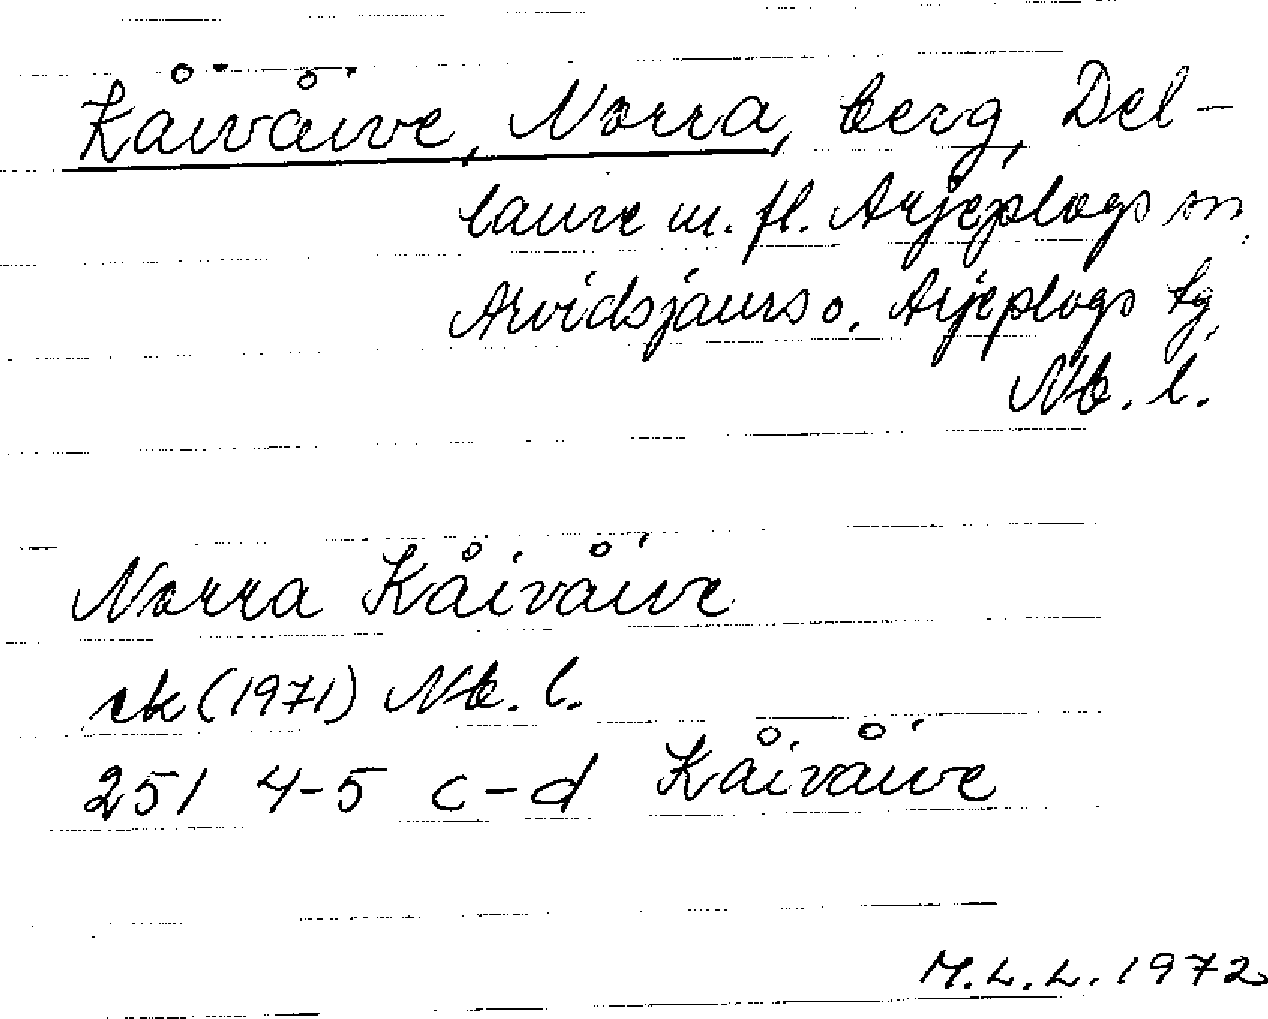 Kåivåive, Norra, berg, Del-
laure m. fl. Arjeplogs sn.
Arvidsjaurs o. Arjeplogs tg.
Nb. l.
Norra Kåivåive
rk (1971) Nb. l.
251 4-5 c-d Kåivåive
M.L.L. 1972